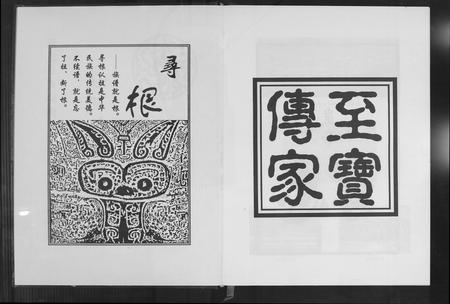 至寶
傳家
尋
根
——族譜就是根。
尋根认祖是中华
民族的传统美德。
不续谱，就是忘
了祖、断了根。